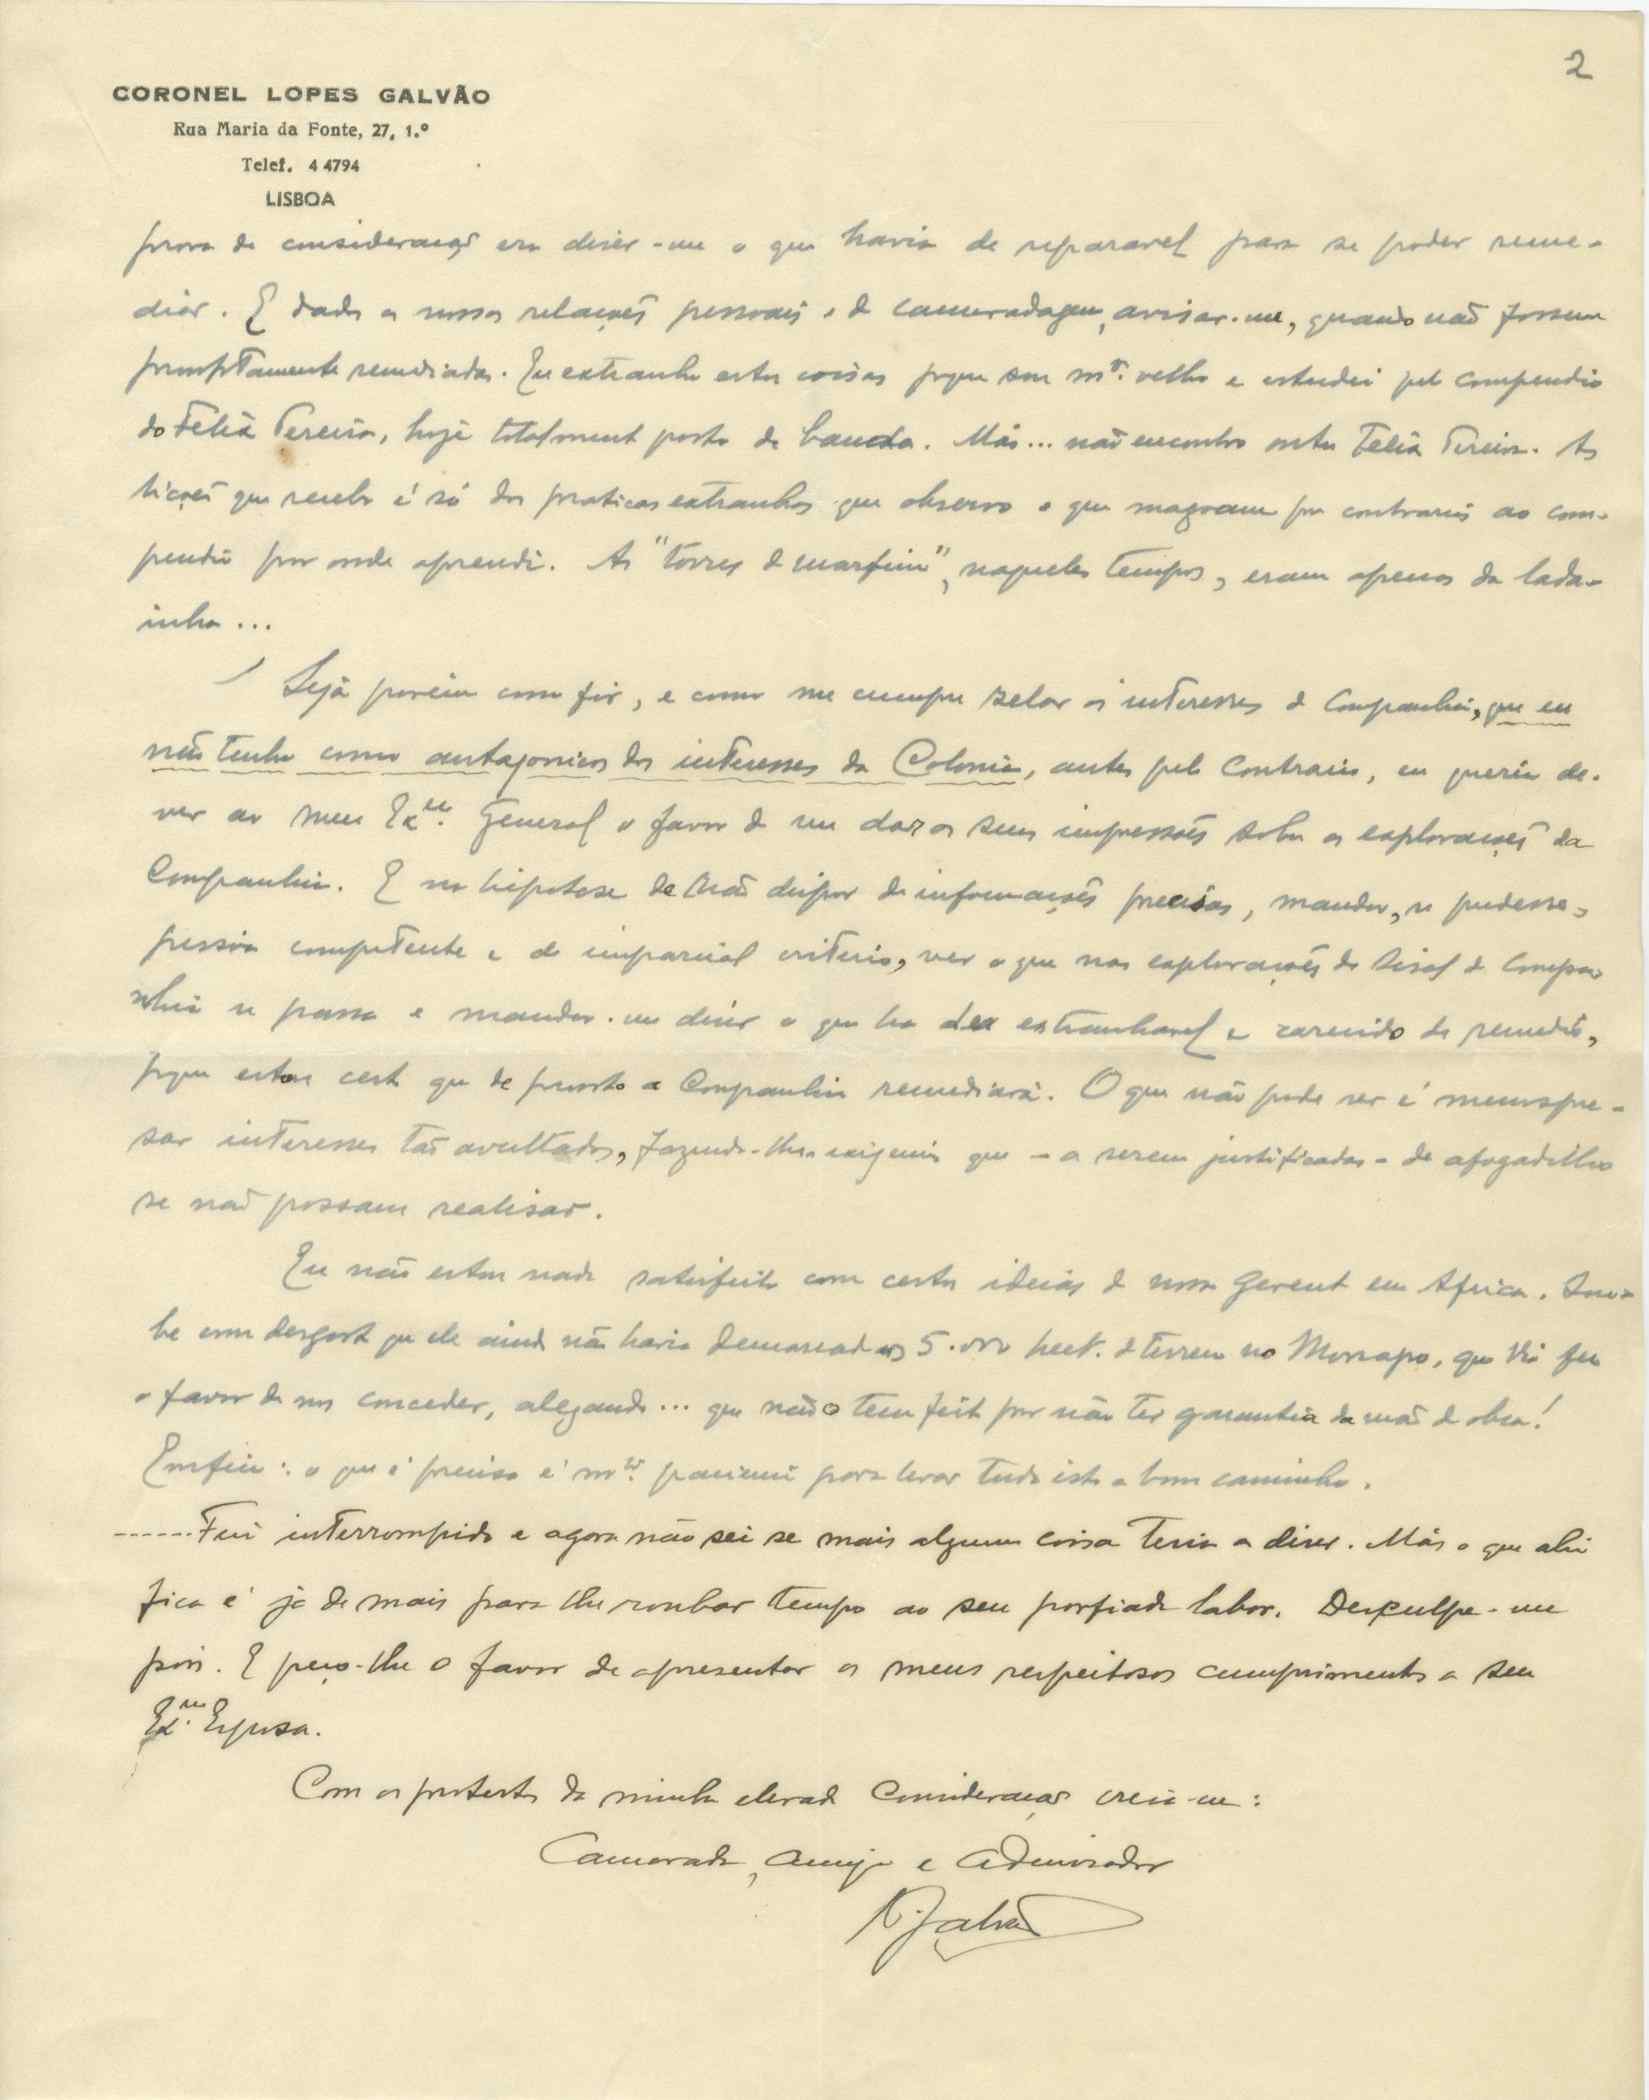 2
CORONEL LOPES GALVÃO
Rua Maria da Fonte, 27, 1.º
Telef. 4 4794
LISBOA
prova de consideração era diser-me o que havia de reparavel para se poder reme-
diar. E dadas as nossas relações pessoais e de camaradagem, avisar-me, quando não fossem
promptamente remediadas. Eu extranho estas coisas porque sou mto. velho e estudei pelo compendio
do Felix Pereira, hoje totalmente posto de banda. Mas... não encontro outro Felix Pereira. As
lições que recebo é só das praticas extranhas que observo e que magoam por contrarias ao com-
pendio por onde aprendi. As "torres de marfim", naqueles tempos, eram apenas da lada-
inha...
Seja porém como fôr, e como me cumpre zelar os interesses da Companhia, que eu
não tenho como antagonicos dos interesses da Colonia, antes pelo contrario, eu queria de-
ver ao meu Exmo. General o favor de me dar as suas impressões sobre as explorações da
Companhia. E na hipotese de não dispor de informações precisas, mandar, se pudesse,
pessoa competente e de imparcial criterio, ver o que nas explorações de Sisal da Compa-
nhia se passa e mandar-me diser o que ha de extranhavel e carecido de remedio,
porque estou certo que de pronto a Companhia remediará. O que não pode ser é menospre-
sar interesses tão avultados, fazendo-lhes exigencias que - a serem justificadas - de afogadilho
se não possam realisar.
Eu não estou nada satisfeito com certas ideias do nosso Gerente em Africa. Sou-
be com desgosto que ele ainda não havia demarcado os 5.000 hect. de terreno no Monapo, que fez
o favor de nos conceder, alegando... que não o tem feito por não ter garantia da mão de obra!
Emfim: o que é preciso é mta. paciencia para levar tudo isto a bom caminho.
......Fui interrompido e agora não sei se mais alguma coisa teria a diser. Mas o que ahi
fica é já de mais para lhe roubar tempo ao seu porfiado labor. Desculpe-me
pois. E peço-lhe o favor de apresentar os meus respeitosos cumprimentos a sua
Exma. Esposa.
Com os protestos da minha elevada consideração creia-me:
Camarada, amigo e admirador
Galvão